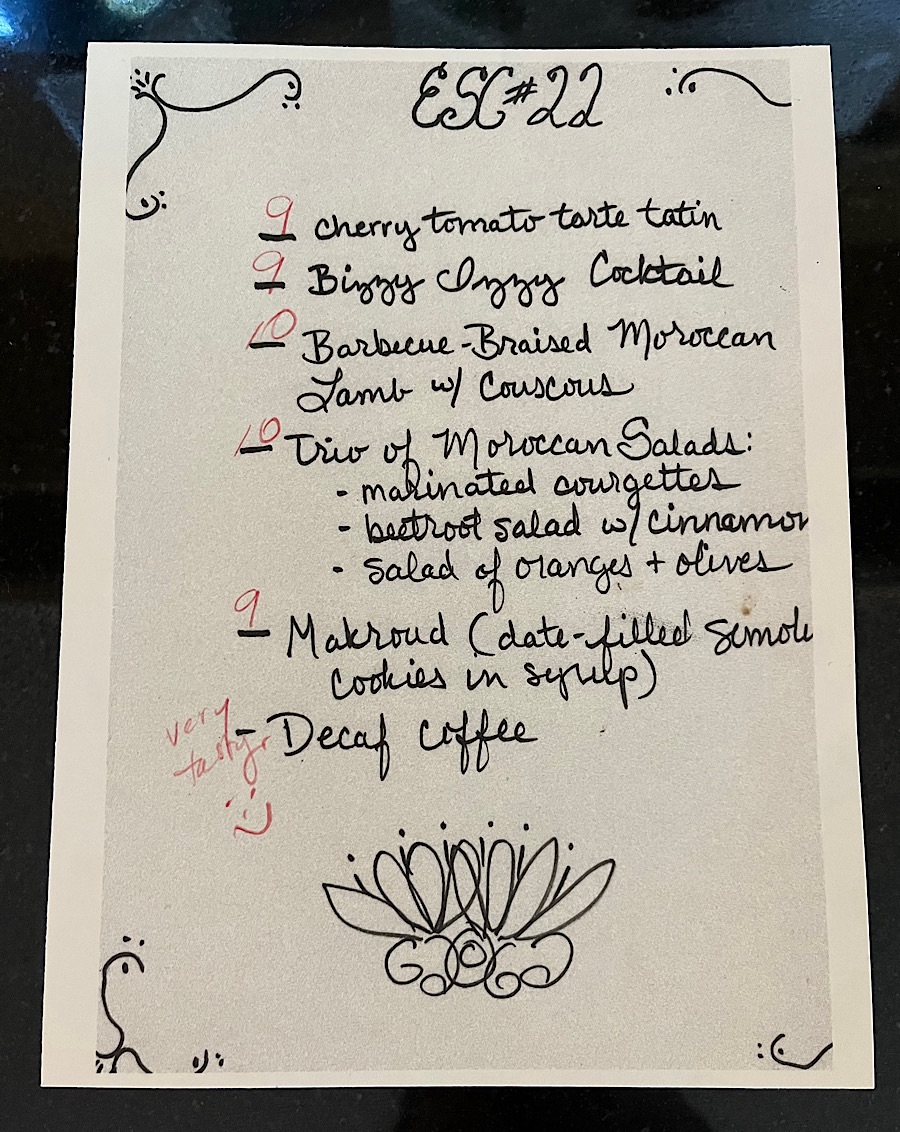 ESC #22
9 cherry tomato tarte tatin
9 Bizzy Izzy Cocktail
10 Barbecue-Braised Moroccan
Lamb w/ Couscous
10 Trio of Moroccan Salads:
- marinated courgettes
- beetroot salad w/ cinnamon
- salad of oranges + olives
9 Makroud (date-filled semoli
cookies in syrup)
very
tasty - Decaf coffee